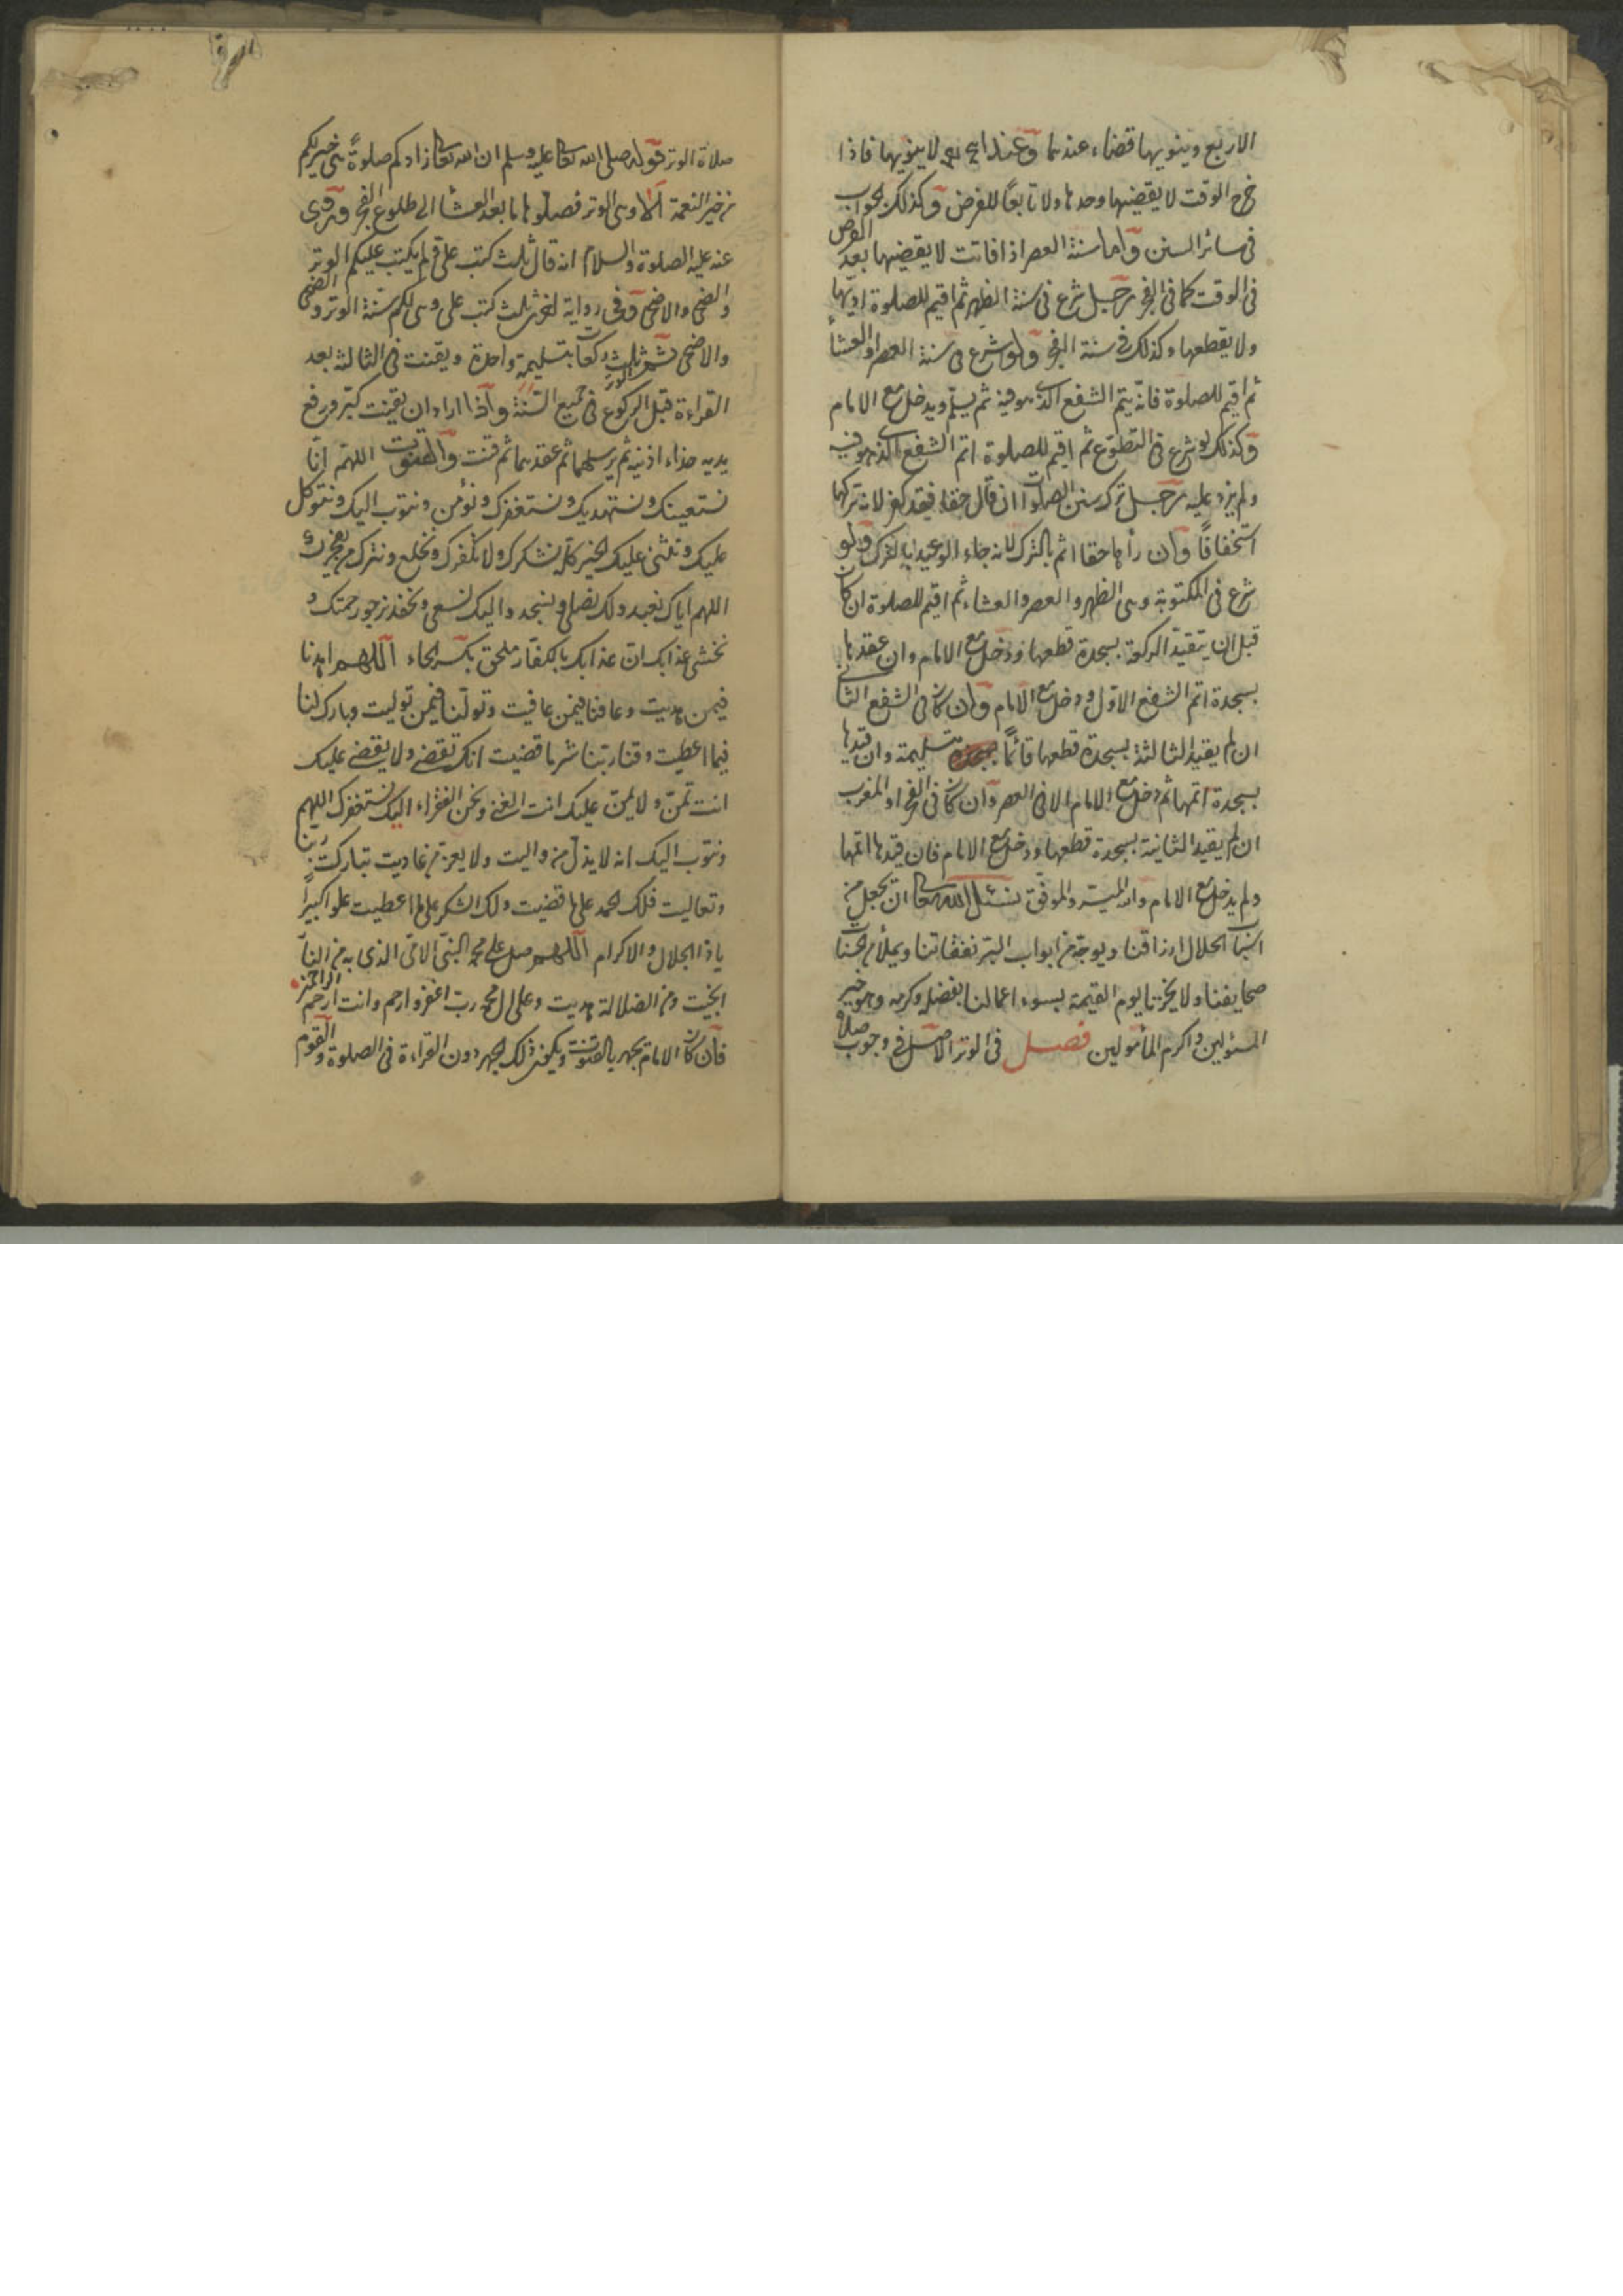 الاربع وينويها قضاء عندهما وعند لا ينويها فاذا
خرج الوقت لا يقضيها وحدها ولا تابعا للفرض وكذلك الجواب
فى سائر السنن واما سنة العصر اذا فاتت لا يقضيها بعد الفرض
فى الوقت كما فى الفجر رجل شرع فى سنة الظهر ثم اقيم للصلوة
ولا يقطعها وكذلك فى سنة الفجر ولو شرع فى سنة العصر او العشا
ثم اقيم للصلوة فانه يتم الشفع الذى هو فيه ثم يسلم ويدخل مع الامام
وكذلك لو شرع فى التطوع ثم اقيم للصلوة اتم الشفع الذى هو فيه
ولم يزد عليه رجل ترك سنن الصلوات ان قال حقا فقد كفر لانه تركها
استخفافا وان رأها حقا اثم بالترك لانه جاء الوعيد بالترك ولو
شرع فى المكتوبة وهى الظهر والعصر والعشاء ثم اقيم للصلوة ان كان
قبل ان يتقيد الركعة بسجدة قطعها ودخل مع الامام وان عقدها
بسجدة اتم الشفع الاول ودخل مع الامام وان كان فى الشفع الثانى
ان لم يقيد الثالثة بسجدة قطعها قائما بتسليمة وان قيدها
بسجدة اتمها ثم دخل مع الامام الا فى العصر وان كان فى الفجر او المغرب
ان لم يقيد الثانية بسجدة قطعها ودخل مع الامام فان قيدها اتمها
ولم يدخل مع الامام والله الميسر والموفق نسئل الله تعالى ان يجعل من
الحلال ارزاقنا ويوجه من ابواب البر نفقاتنا ويملأ من
صحايفنا ولا يخزنا يوم القيمة بسوء اعمالنا بفضله وكرمه وهو خير
المسئولين واكرم المأمولين فصل فى الوتر الاصل فى وجوب صلاة
صلاة الوتر قوله صلى الله تعالى عليه وسلم ان الله تعالى زادكم صلوة هى خير لكم
من خير النعمة الا وهى الوتر فصلوها ما بعد العشا الى طلوع الفجر وروى
عنه عليه الصلوة والسلام انه قال ثلث كتب على ولم يكتب عليكم الوتر
والضحى والاضحى وفى رواية اخرى ثلث كتب على وهى لكم سنة الوتر والضحى
والاضحى ثم الوتر ثلث ركعات بتسليمة واحدة ويقنت فى الثالثة بعد
القراءة قبل الركوع فى جميع السنة واذا اراد ان يقنت كبر ورفع
يديه حذاء اذنيه ثم يرسلهما ثم عقدهما ثم قنت والقنوت اللهم انا
نستعينك ونستهديك ونستغفرك ونؤمن ونتوب اليك ونتوكل
عليك ونثنى عليك الخير كله نشكرك ولا نكفرك ونخلع ونترك من يفجرك
اللهم اياك نعبد ولك نصلى ونسجد واليك نسعى ونحفد نرجو رحمتك و
نخشى عذابك ان عذابك بالكفار ملحق بكسر الحاء اللهم اهدنا
فيمن هديت وعافنا فيمن عافيت وتولنا فيمن توليت وبارك لنا
فيما اعطيت وقنا ربنا شر ما قضيت انك تقضى ولا يقضى عليك
انت تمن ولا يمن عليك انت الغنى ونحن الفقراء اليك نستغفرك اللهم
ونتوب اليك انه لا يذل من واليت ولا يعز من عاديت تباركت ربنا
وتعاليت فلك الحمد على ما قضيت ولك الشكر على ما اعطيت علوا كبيرا
يا ذا الجلال والاكرام اللهم صل على محمد النبى الامى الذى به من النار
انجيت ومن الضلالة هديت وعلى ال محمد رب اغفر وارحم وانت ارحم الراحمين
فان كان الامام يجهر بالقنوت ويكون ذلك الجهر دون القراءة فى الصلوة والقوم